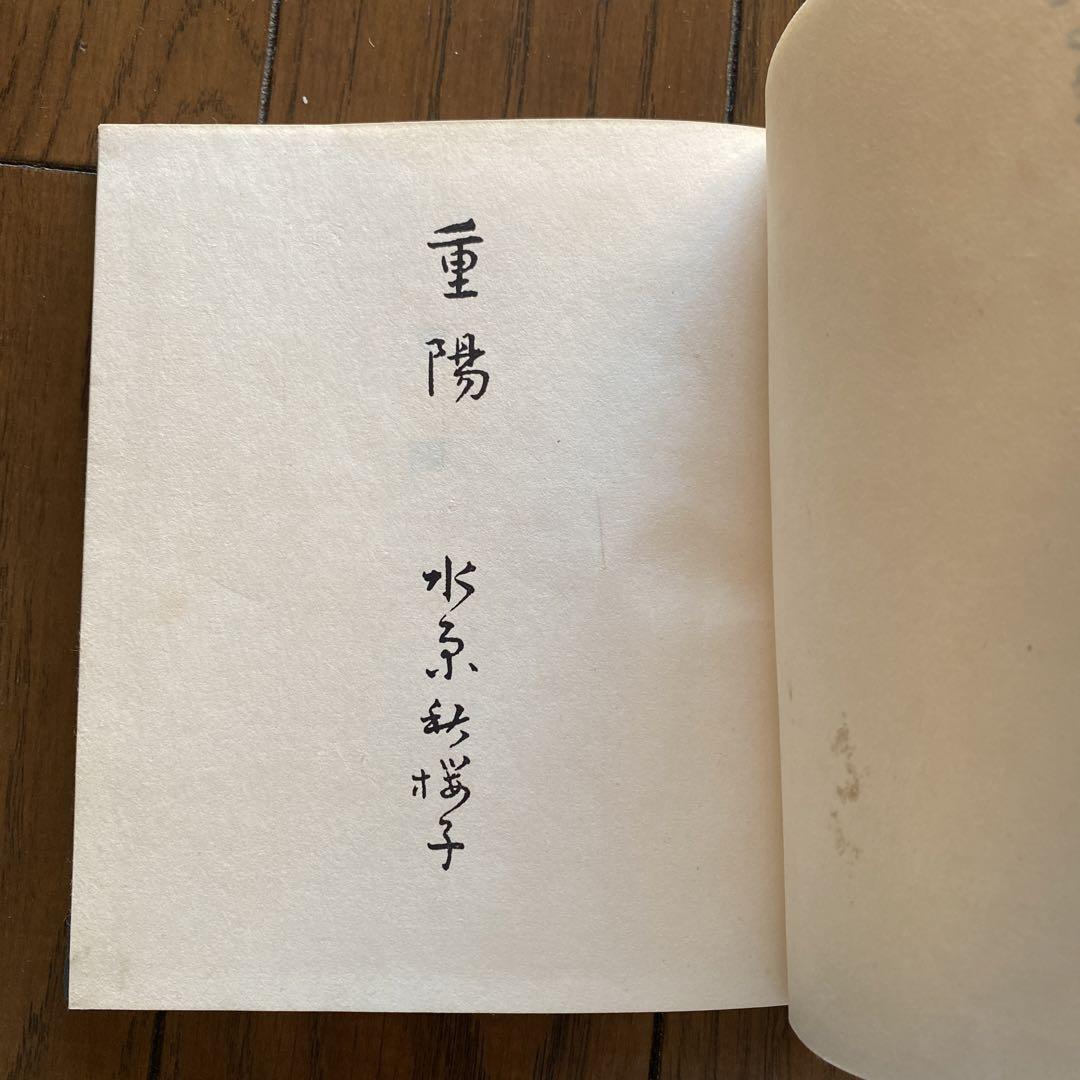 重陽
水原秋桜子